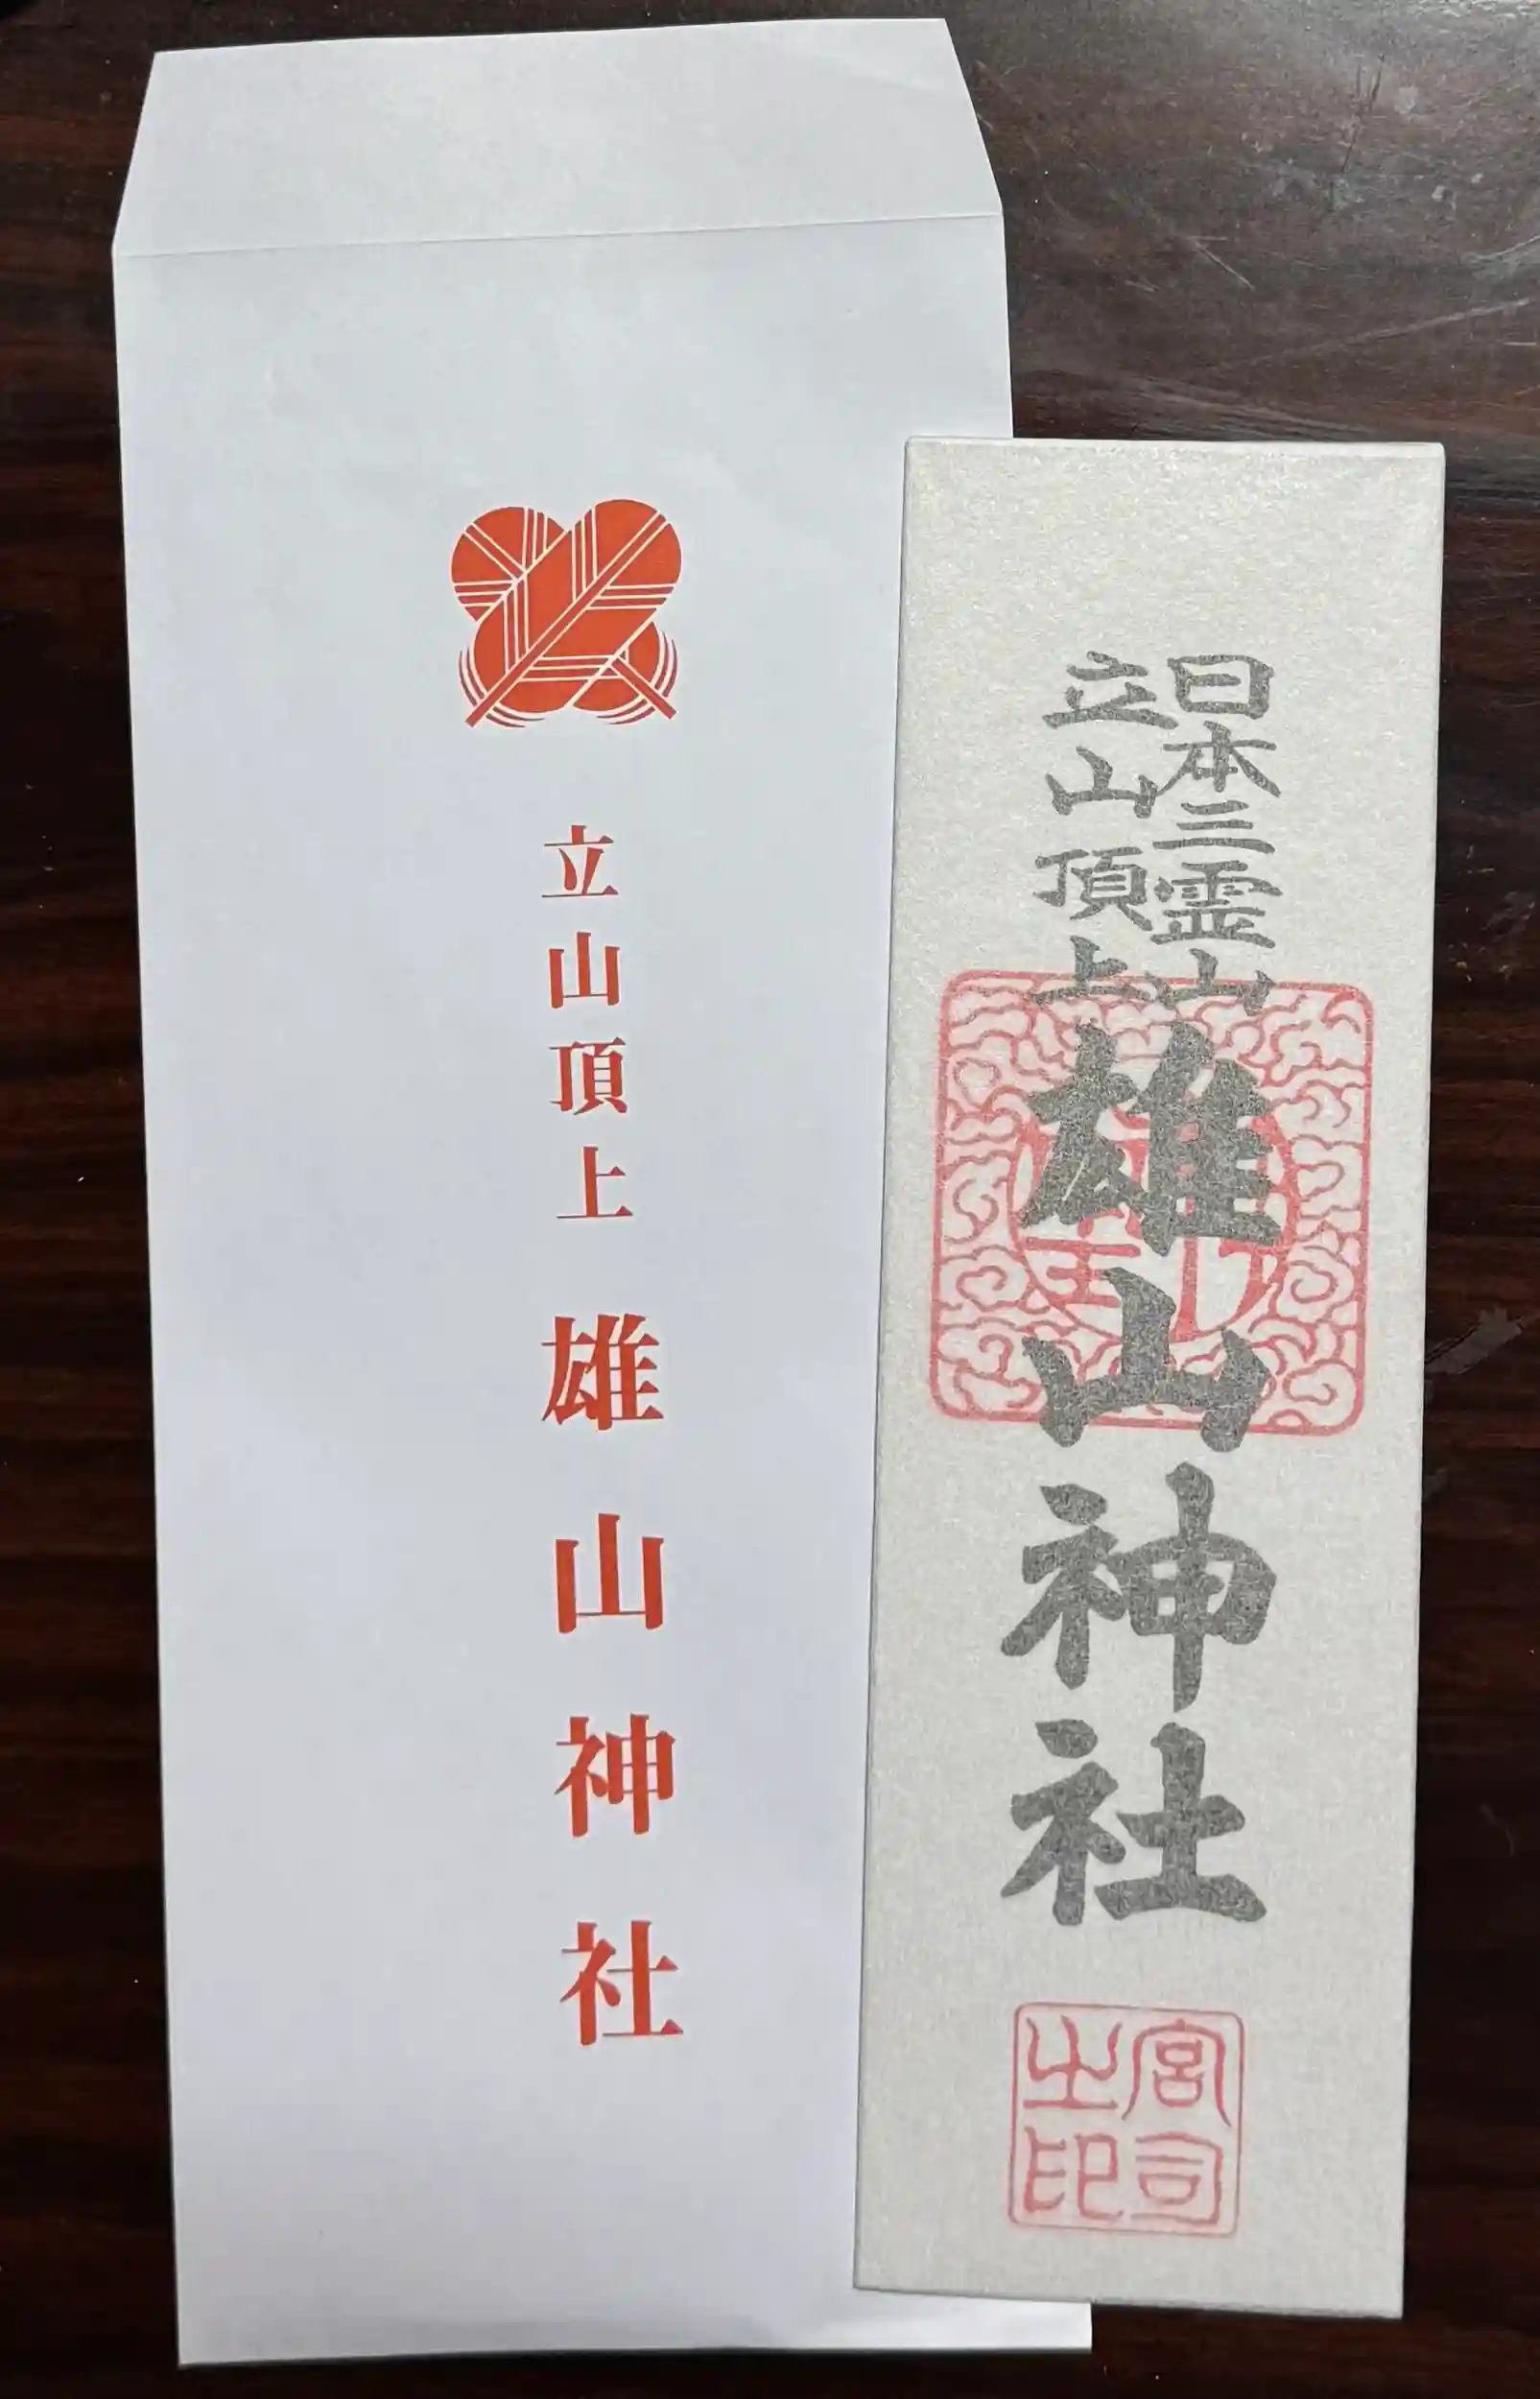 立山頂上 雄山神社
日本三霊山
立山頂上
雄山神社
宮司
之印